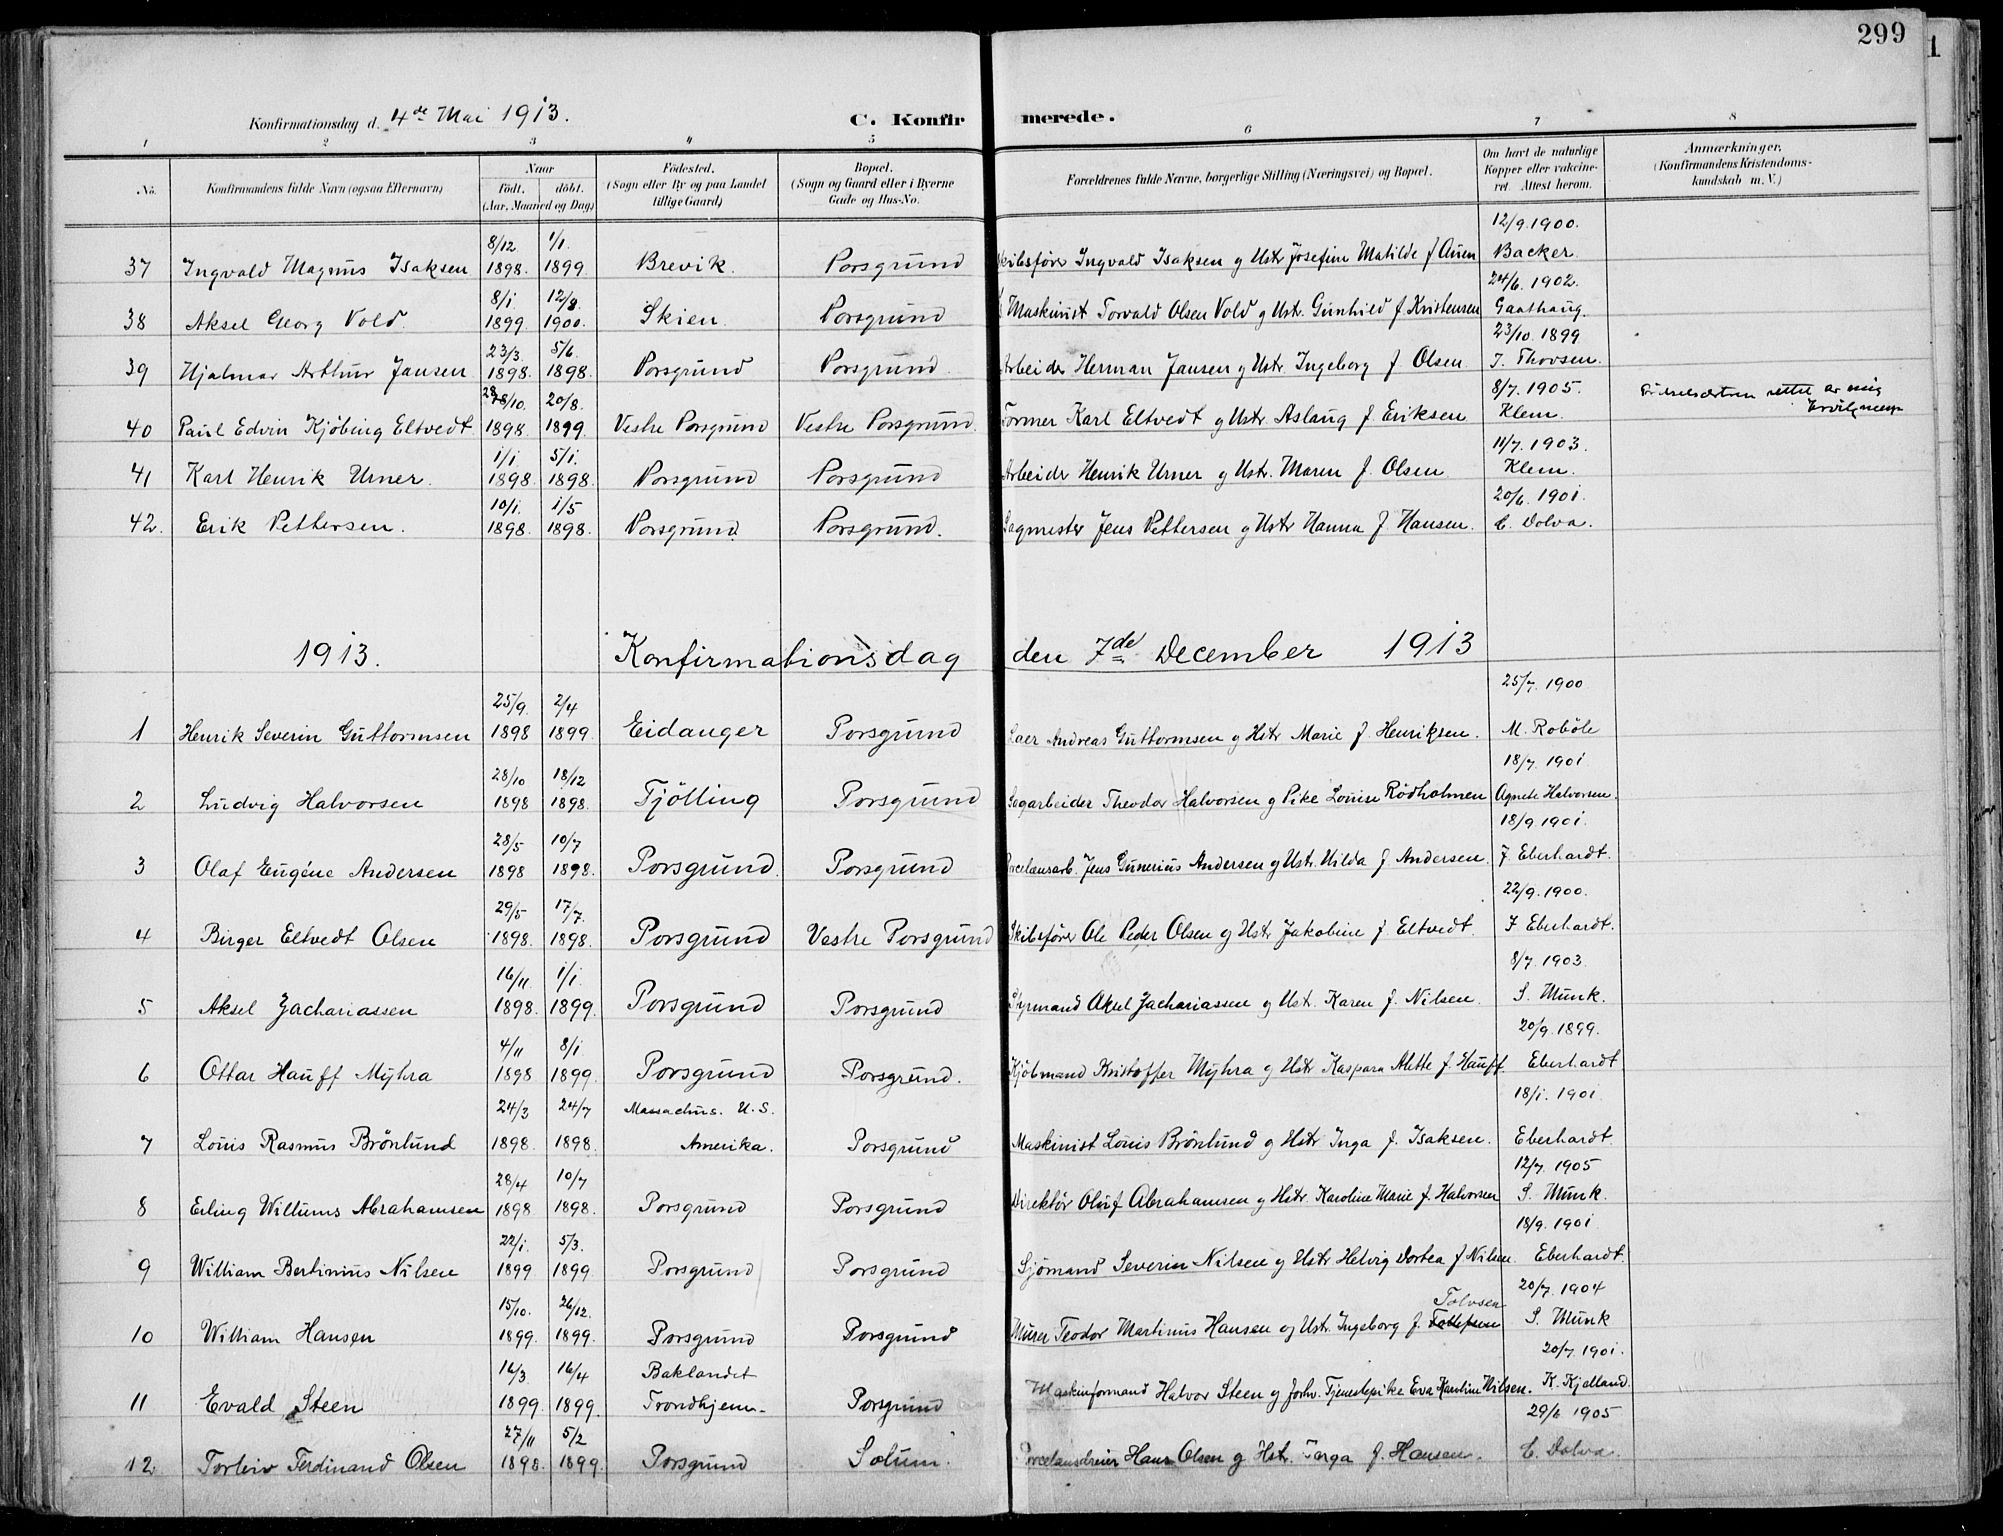 299
1
Konfirmationsdag d. 4de Mai 1913.
C. Konfirmerede.
1 2 3 4 5 6 7 8
No. Konfirmandens fulde Navn (ogsaa Efternavn) Naar Födt. döbt. (Aar, Maaned og Dag) Födested. (Sogn eller By og paa Landet tillige Gaard) Bopæl. (Sogn og Gaard eller i Byerne Gade og Hus-No. Forældrenes fulde Navne, borgerlige Stilling (Næringsvei) og Bopæl. Om havt de naturlige Kopper eller vakcineret. Attest herom. Anmærkninger, (Konfirmandens Kristendomskundskab m. V.)
37 Ingvald Magnus Isaksen 8/12 1898. 1/1. 1899 Brevik. Porsgrund Skibsfører Ingvald Isaksen g Hstr Josefine Matilde f Auen 12/9.1900. Backer
38 Aksel Georg Vold. 8/1 1899 12/8. 1900. Skien. Porsgrund Maskinist Torvald Olsen Vold g Hstr. Gunhild f Kristensen 24/6. 1902. Gaathaug.
39 Hjalmar Arthur Jansen 23/3. 1898. 5/6. 1898. Porsgrund Porsgrund. Arbeider Herman Jansen g Hstr. Ingeborg f Olsen. 23/10. 1899 I. Thovsen.
40 Paul Edvin Kjöbing Eltvedt 28/10. 1898. 20/8. 1899. Vestre Porsgrund Vestre Porsgrund. Former Karl Eltvedt g Hstr. Aslaug f Eriksen 8/7. 1905. Klem. rettet av mig
41 Karl Henrik Urner. 1/1. 1898. 5/1. 1898. Porsgrund Porsgrund Arbeider Henrik Urner g Hstr. Maren f. Olsen. 11/7. 1903. Klem.
42. Erik Pettersen. 10/1. 1898. 1/5 1898. Porsgrund. Porsgrund. Sagmester Jens Pettersen g Hstr Hanna f Hansen. 20/6. 1901. C. Dolva.
1913. Konfirmationsdag den 7de December 1913
1 Henrik Severin Guttormsen 25/9. 1898 2/4 1899. Eidanger Porsgrund Andreas Guttormsen g Hstr Marie f Henriksen. 25/7. 1900 M. Roböle
2 Ludvig Halvorsen 28/10 1898 18/12 1898. Tjölling Porsgrund Sagarbeider Theodor Halvorsen g Pike Louise Rödholmen 18/7. 1901 Agnete Halvorsen.
3 Olaf Eugéne Andersen 28/5 1898 10/7 1898. Porsgrund. Porsgrund Porcelænsarb. Jens Gunerius Andersen g Hstr. Hilda f Andersen. 18/9.1901. J. Eberhardt.
4 Birger Eltvedt Olsen 29/5 1898. 17/7. 1898. Porsgrund Vestre Porsgrund Skibsfører Ole Peder Olsen g Hstr Jakobine f. Eltvedt. 22/9. 1900. J Eberhardt.
5 Aksel Zachariassen 16/11 1898. 1/1. 1899. Porsgrund Porsgrund Styrmand Aksel Zachariassen g Hst. Karen f. Nilsen. 8/7. 1903. S. Munk.
6 Ottar Hauff Myhra 4/11 1898 8/1 1899. Porsgrund Porsgrund. Kjöbmand Kristoffer Myhra g Hstr Kaspara Alette f. Hauff 20/9. 1899. Eberhardt.
7 Louis Rasmus Brönlund 24/3 1898. 24/7 1898. Massachus. U.S. Amerika. Porsgrund Maskinist Louis Brönlund g Hstr Inga f. Isaksen. 18/1. 1901. Eberhardt.
8 Erling Willums Abrahamsen 28/4 1898 10/7 1898. Porsgrund Porsgrund Direktör Oluf Abrahamsen g Hstr. Karoline Marie f. Halvorsen 12/7. 1905 S. Munk.
9 William Bertinius Nilsen 22/1. 1899 5/3. 1899. Porsgrund Porsgrund Sjömand Severin Nilsen g Hstr Helvig Dortea f Nilsen. 18/9. 1901. Eberhardt.
10 William Hansen 15/10. 1899. 26/12. 1899. Porsgrund Porsgrund Murer Teodor Martinius Hansen g Hstr. Ingeborg f. Tolvsen 20/7. 1904 S. Munk
11 Evald Steen 16/3. 1899. 16/4 1899. Baklandet Trondhjem. Porsgrund Maskinformand Halvor Steen g forhv. Tjenestepike Eva Karoline Nilsen. 20/7. 1901. K. Kjelland.
12 Torleiv Ferdinand Olsen 27/11 1898. 5/2 1899. Porsgrund Solum. Porcelænsdreier Hans Olsen g Hstr. Targa f. Hansen. 29/6 1905 C. Dolva.